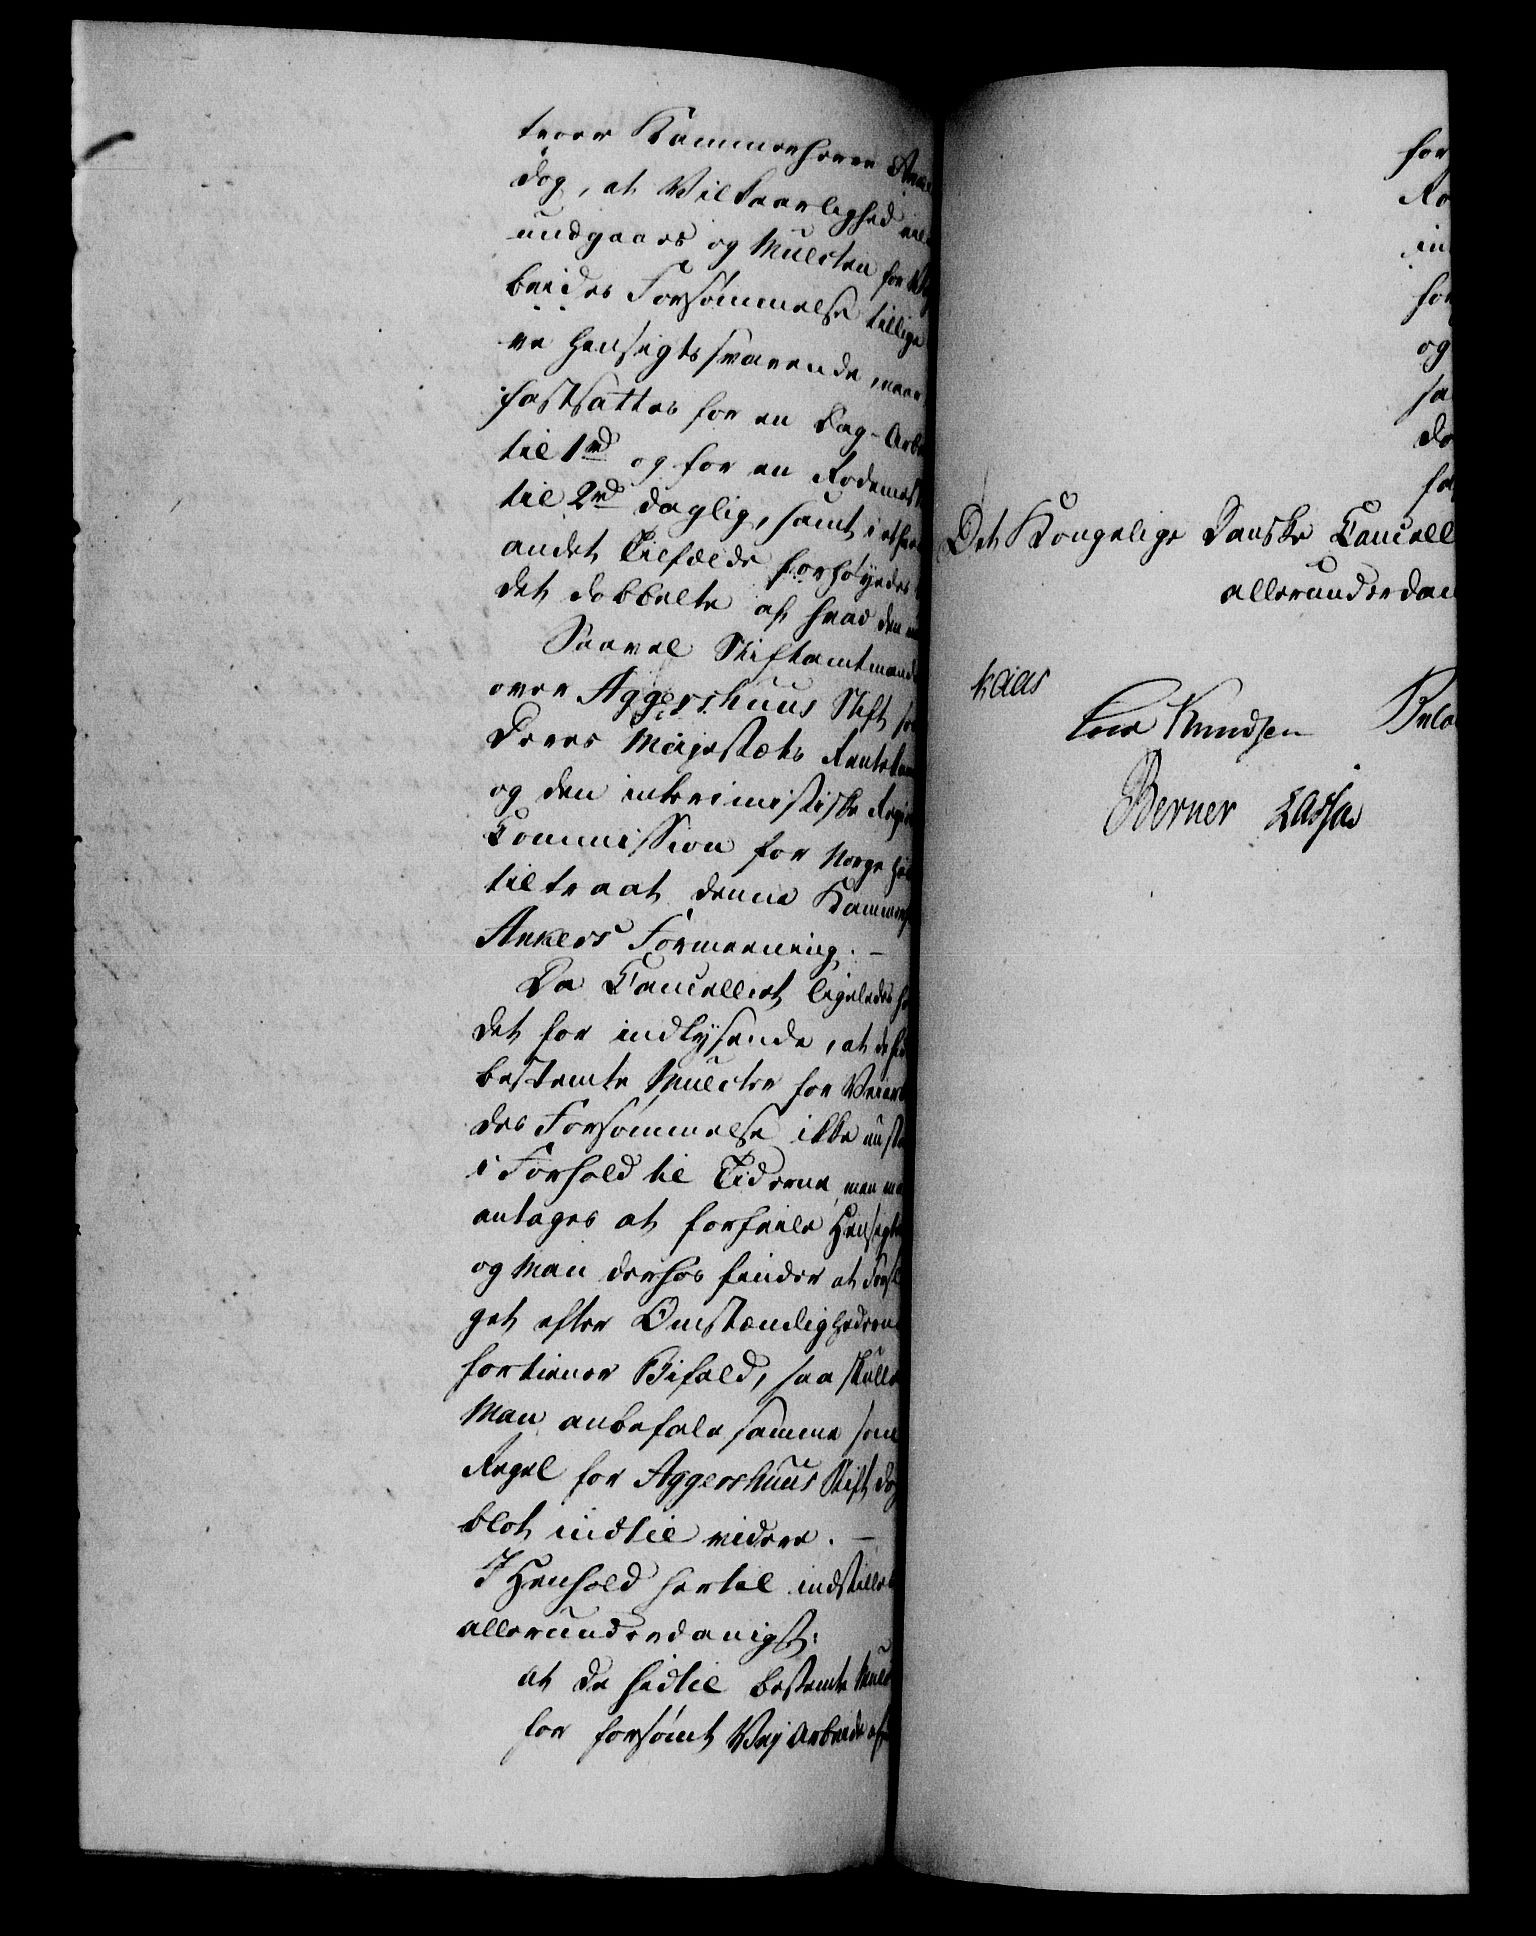 troer Kammerherre
dog, at Vilkaarlighed
undgaaes og Mulcten for
beides Forsømmelse tillige
re hensigtssvarende, naar
fastsattes for en Dag-Arb
til 1 rd og for en Rodemest
til 2 rd daglig, samt i ethve
andet Tilfælde forhøyedes
det dobbelte af hvad den
Saavel Stiftamtmand
over Aggershuus Stift so
Deres Majestæts Rentekam
og den interimistiske Regie
Commission for Norge ha
tiltraadt denne Kammerh
Ankers Formeening. —
Da Cancelliet ligeledes h
det for indlysende, at de hi
bestemte Mulcter for Veiar
des Forsømmelse ikke
i Forhold til Tiderne, men m
antages at forfeile Hensigt
og Man derhos finder at Forsl
get efter Omstændighederne
fortiener Bifald, saa skulle
Man anbefale samme som
Regel for Aggershuus Stift dog
blot indtil videre. —
I Henhold hertil indstilles
allerunderdanigst:
at de hidtil bestemte Mulc
for forsømt Vej Arbeide af
for
Ro
in
for
og
sa
do
fo
Det Kongelige Danske Cancell
allerunderdan
Kaas
Knudsen
Berner Lassen